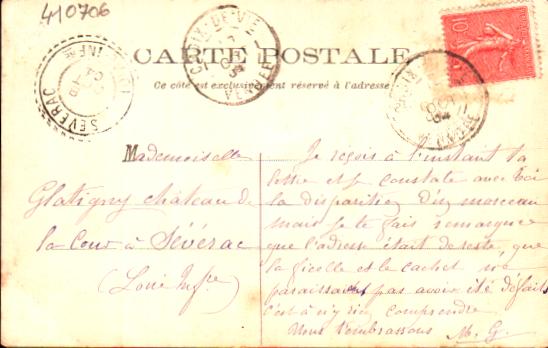 410706
CARTE POSTALE
Ce côté est exclusivement réservé à l'adresse
CROIX-DE-VIE
VENDÉE
SÉVERAC
INFRE
10
Mademoiselle
Glatigny château de
la Cour à Sévérac
(Loire Infre)
Je reçois à l'instant ta
lettre et je constate avec toi
la disparition d'un morceau
mais je te fais remarquer
que l'adresse était de reste, que
la ficelle et le cachet ne
paraissaient pas avoir été défaits
c'est à n'y rien comprendre
Nous t'embrassons M. G.